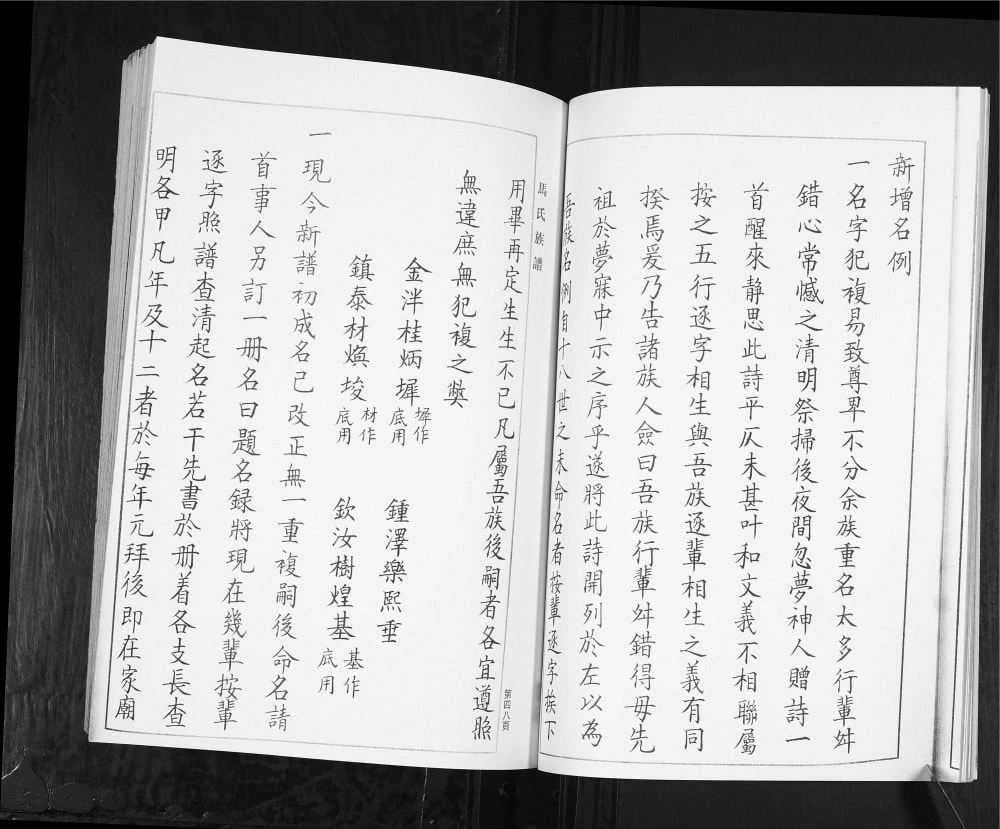 新增名例
一名字犯複易致尊卑不分余族重名太多行輩舛
錯心常憾之清明祭掃後夜間忽夢神人贈詩一
首醒來静思此詩平仄未甚叶和文義不相聯屬
按之五行逐字相生與吾族逐輩相生之義有同
揆焉爰乃告諸族人僉曰吾族行輩舛錯得毋先
祖於夢寐中示之序乎遂將此詩開列於左以為
吾族名例自十八世之未命名者按輩逐字挨下
馬氏族譜
第四八頁
用畢再定生生不已凡屬吾族後嗣者各宜遵照
無違庶無犯複之獘
金泮桂炳墀
墀作
底用
鍾澤樂熙垂
鎮泰材煥埈
材作
底用
欽汝樹煌基
基作
底用
一現今新譜初成名已改正無一重複嗣後命名請
首事人另訂一册名曰題名録將現在幾輩按輩
逐字照譜查清起名若干先書於册着各支長查
明各甲凡年及十二者於每年元拜後即在家廟